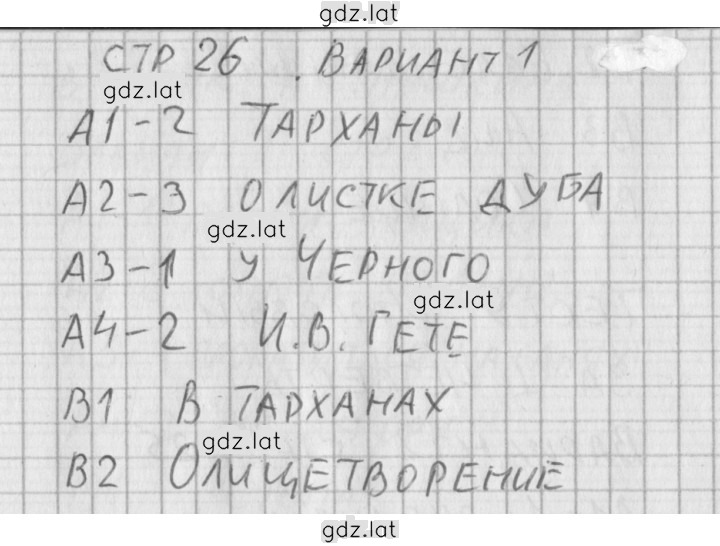 gdz.lat
СТР 26. ВАРИАНТ 1
gdz.lat
А1-2 ТАРХАНЫ
А2-3 О ЛИСТКЕ ДУБА
gdz.lat
А3-1 У ЧЕРНОГО
gdz.lat
А4-2 И.В. ГЕТЕ
В1 В ТАРХАНАХ
gdz.lat
В2 ОЛИЦЕТВОРЕНИЕ
gdz.lat